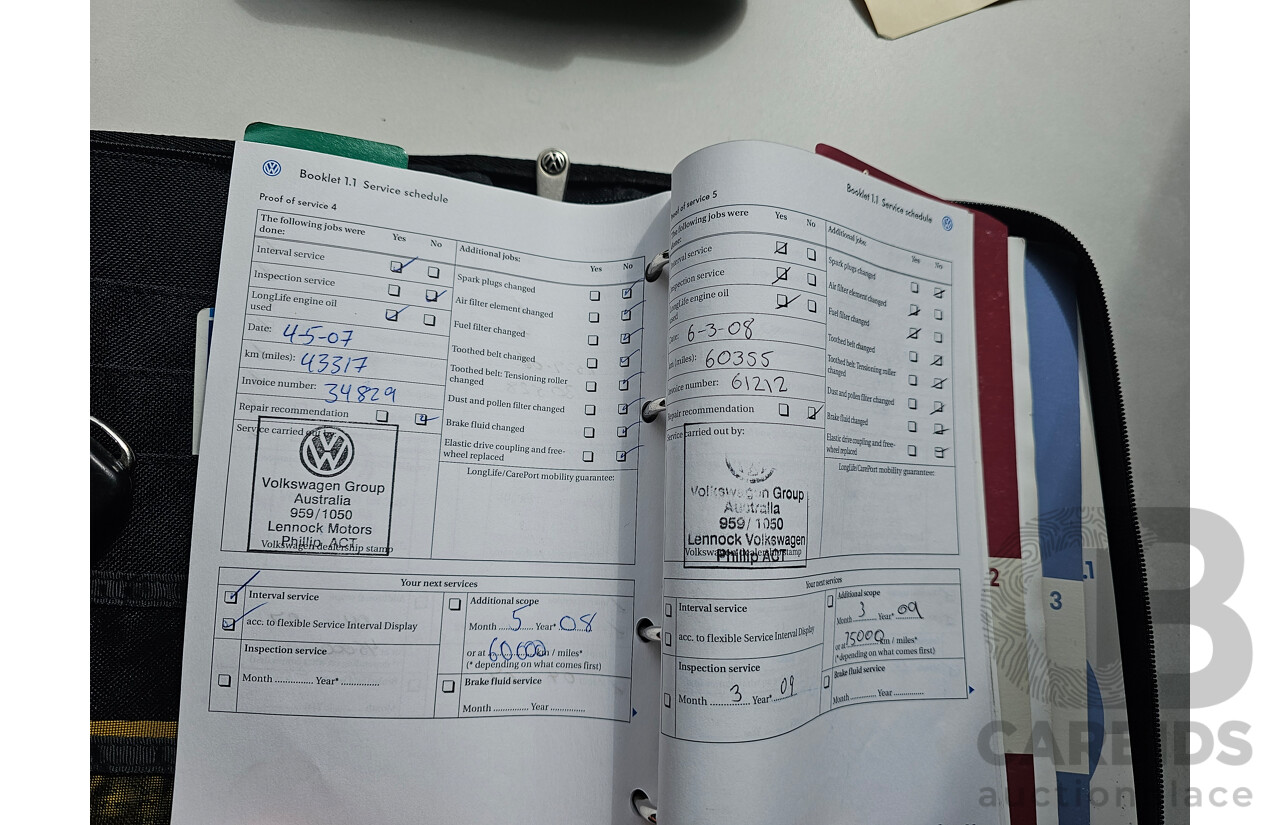 Booklet 1.1 Service schedule
Proof of service 4
The following jobs were done:
Yes No
Interval service
Inspection service
LongLife engine oil used
Date: 4-5-07
km (miles): 43317
Invoice number: 34829
Repair recommendation
Service carried out by:
Volkswagen Group
Australia
959/1050
Lennock Motors
Phillip ACT
Volkswagen dealership stamp
Additional jobs:
Yes No
Spark plugs changed
Air filter element changed
Fuel filter changed
Toothed belt changed
Toothed belt: Tensioning roller
changed
Dust and pollen filter changed
Brake fluid changed
Elastic drive coupling and free-
wheel replaced
LongLife/CarePort mobility guarantee:
Your next services
Interval service
acc. to flexible Service Interval Display
Inspection service
Month .............. Year* ..............
Additional scope
Month 5 Year* 08
or at 60000 km / miles*
(* depending on what comes first)
Brake fluid service
Month .............. Year ..............
Booklet 1.1 Service schedule
Proof of service 5
The following jobs were
done:
Yes No
Interval service
Inspection service
LongLife engine oil
used
Date: 6-3-08
km (miles): 60355
Invoice number: 61212
Repair recommendation
Service carried out by:
Volkswagen Group
Australia
959/1050
Lennock Volkswagen
Phillip ACT
Volkswagen dealership stamp
Additional jobs:
Yes No
Spark plugs changed
Air filter element changed
Fuel filter changed
Toothed belt changed
Toothed belt: Tensioning roller
changed
Dust and pollen filter changed
Brake fluid changed
Elastic drive coupling and free-
wheel replaced
LongLife/CarePort mobility guarantee:
Your next services
Interval service
acc. to flexible Service Interval Display
Inspection service
Month 3 Year* 09
Additional scope
Month 3 Year* 09
or at 75000 km / miles*
(* depending on what comes first)
Brake fluid service
Month .............. Year ..............
2
3
.1
CARBIDS
auction place